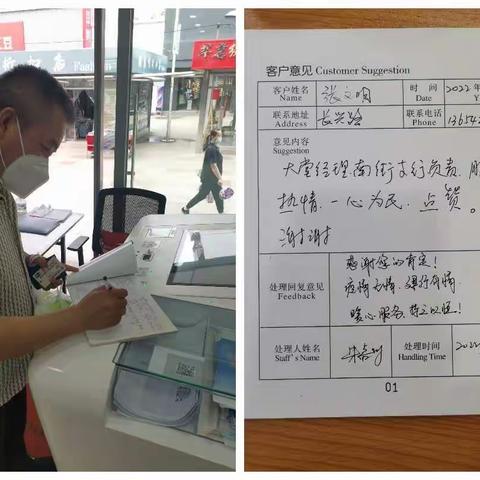 Fashion
客户意见 Customer Suggestion
客户姓名
Name
张文明
时 间
Date
2022年
Y
联系地址
Address
长兴路
联系电话
Phone
13654
意见内容
Suggestion
大堂经理南街支行负责、服
热情、一心为民、点赞。
谢谢
处理回复意见
Feedback
感谢您的肯定！
疫情无情、银行有情
暖心服务、持之以恒！
处理人姓名
Staff's Name
处理时间
Handling Time
2022
01